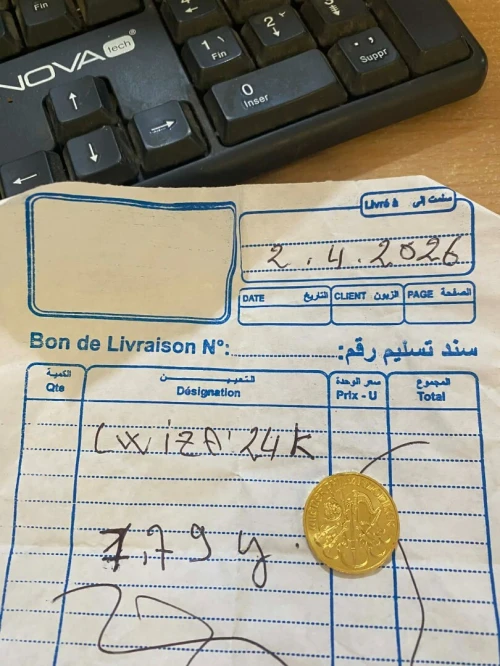 1 Fin
2
. , Suppr
0 Inser
NOVA tech ®
Livré à سلمت إلى
2.4.2026
DATE التاريخ CLIENT الزبون PAGE الصفحة
Bon de Livraison N°: سند تسليم رقم:
الكمية التعييــــن سعر الوحدة المجموع
Qts Désignation Prix - U Total
LWIZA 24K
1,79 g